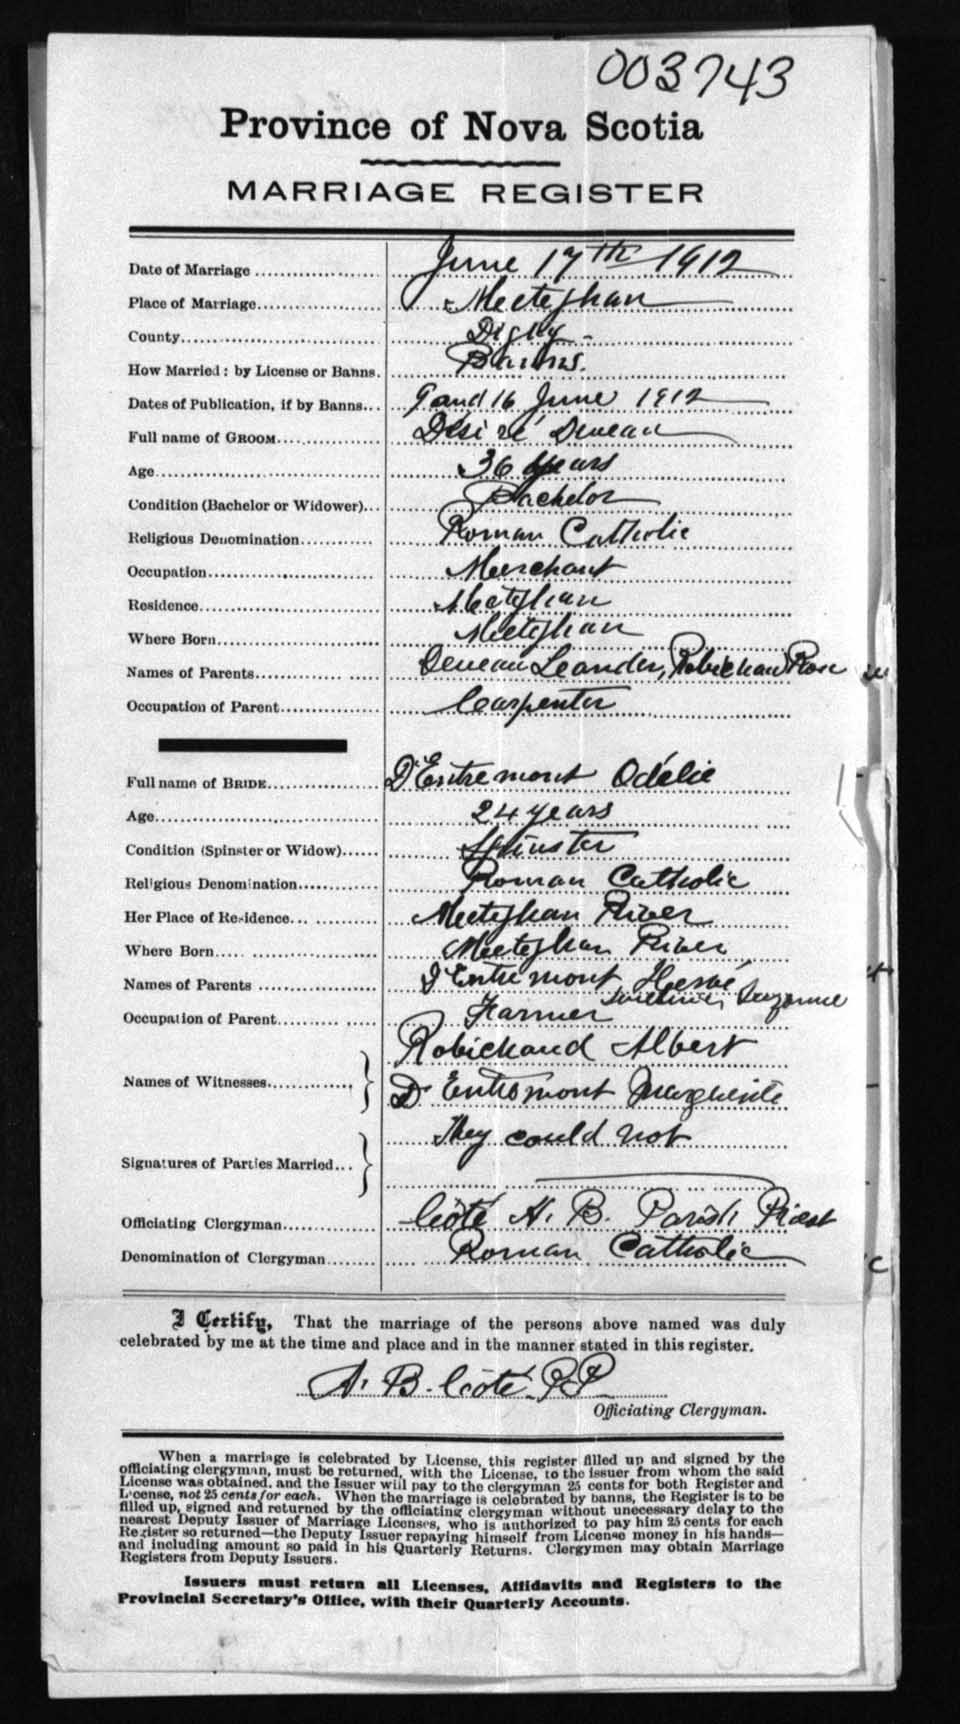 003743
Province of Nova Scotia
MARRIAGE REGISTER
Date of Marriage June 17th 1912
Place of Marriage Meteghan
County Digby
How Married: by License or Banns. Banns.
Dates of Publication, if by Banns 9 and 16 June 1912
Full name of GROOM Désiré Deveau
Age 36 years
Condition (Bachelor or Widower) Bachelor
Religious Denomination Roman Catholic
Occupation Merchant
Residence Meteghan
Where Born Meteghan
Names of Parents Deveau Leander, Robichaud Rose
Occupation of Parent Carpenter
Full name of BRIDE D'Entremont Odélie
Age 24 years
Condition (Spinster or Widow) Spinster
Religious Denomination Roman Catholic
Her Place of Residence Meteghan River
Where Born Meteghan River
Names of Parents D'Entremont Hervé,
Suzanne
Occupation of Parent Farmer
Names of Witnesses Robichaud Albert
D'Entremont Marguerite
Signatures of Parties Married They could not
Officiating Clergyman Côté A. B. Parish Priest
Denomination of Clergyman Roman Catholic
I Certify, That the marriage of the persons above named was duly
celebrated by me at the time and place and in the manner stated in this register.
A. B. Côté P.P
Officiating Clergyman.
When a marriage is celebrated by License, this register filled up and signed by the
officiating clergyman, must be returned, with the License, to the issuer from whom the said
License was obtained, and the Issuer will pay to the clergyman 25 cents for both Register and
License, not 25 cents for each. When the marriage is celebrated by banns, the Register is to be
filled up, signed and returned by the officiating clergyman without unnecessary delay to the
nearest Deputy Issuer of Marriage Licenses, who is authorized to pay him 25 cents for each
Register so returned—the Deputy Issuer repaying himself from License money in his hands—
and including amount so paid in his Quarterly Returns. Clergymen may obtain Marriage
Registers from Deputy Issuers.
Issuers must return all Licenses, Affidavits and Registers to the
Provincial Secretary's Office, with their Quarterly Accounts.